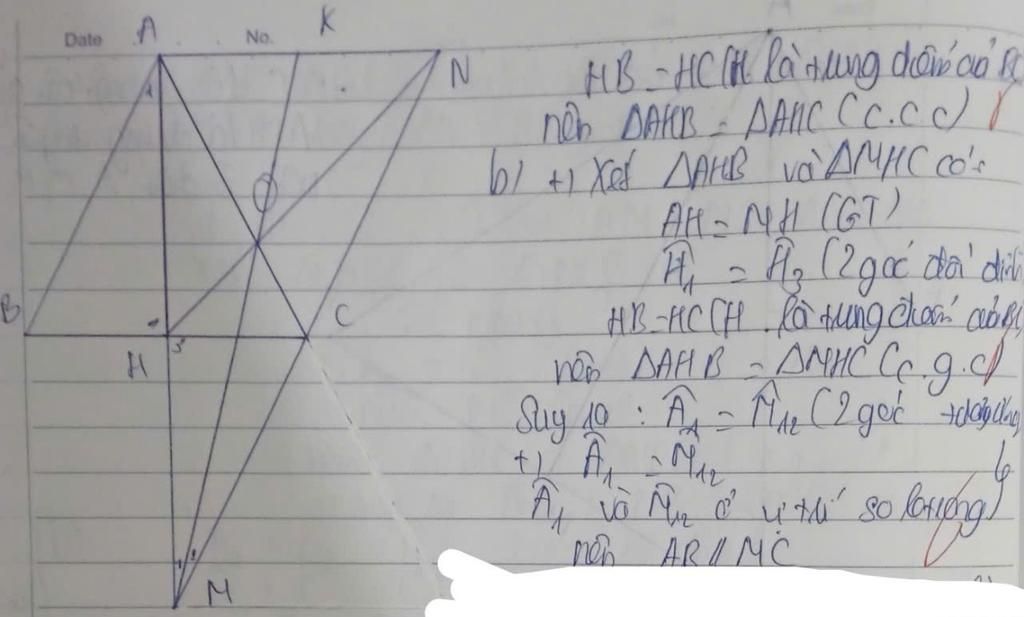 Date
No.
A
K
N
B
H
C
M
HB = HC (H là trung điểm của BC
nên ΔAHB = ΔAHC (c.c.c)
b) +) Xét ΔAHB và ΔMHC có:
AH = MH (GT)
Ĥ₁ = Ĥ₃ (2 góc đối đỉnh
HB = HC (H là trung điểm của BC
nên ΔAHB = ΔMHC (c.g.c)
Suy ra : Â₁ = M̂₁₂ (2 góc tương ứng
+) Â₁ = M̂₁₂
Â₁ và M̂₁₂ ở vị trí so le trong
nên AB // MC